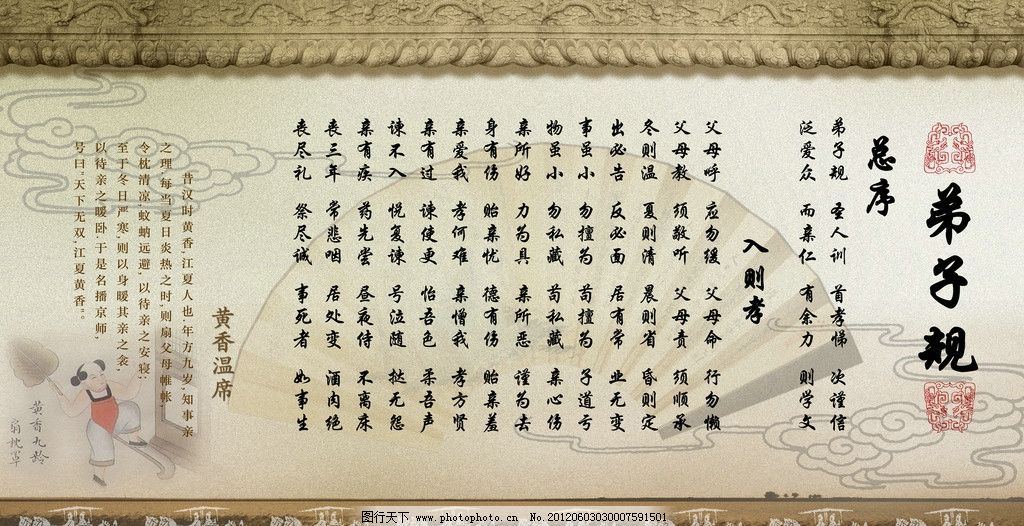 弟子规
总序
弟子规 圣人训 首孝悌 次谨信
泛爱众 而亲仁 有余力 则学文
入则孝
父母呼 应勿缓 父母命 行勿懒
父母教 须敬听 父母责 须顺承
冬则温 夏则清 晨则省 昏则定
出必告 反必面 居有常 业无变
事虽小 勿擅为 苟擅为 子道亏
物虽小 勿私藏 苟私藏 亲心伤
亲所好 力为具 亲所恶 谨为去
身有伤 贻亲忧 德有伤 贻亲羞
亲爱我 孝何难 亲憎我 孝方贤
亲有过 谏使更 怡吾色 柔吾声
谏不入 悦复谏 号泣随 挞无怨
亲有疾 药先尝 昼夜侍 不离床
丧三年 常悲咽 居处变 酒肉绝
丧尽礼 祭尽诚 事死者 如事生
黄香温席
昔汉时黄香,江夏人也.年方九岁,知事亲
之理.每当夏日炎热之时,则扇父母帷帐,
令枕清凉,蚊蚋远避,以待亲之安寝;
至于冬日严寒,则以身暖其亲之衾,
以待亲之暖卧.于是名播京师,
号曰"天下无双,江夏黄香"。
黄香九龄
扇枕
图行天下 www.photophoto.cn No.20120603030007591501